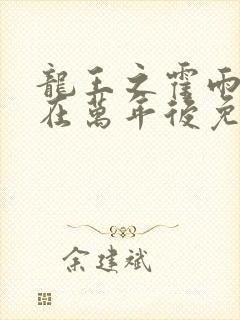 龍王之霍雨
在萬年後免
余建斌